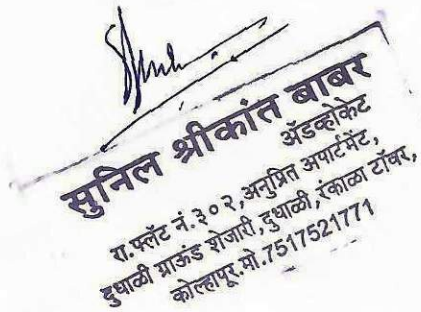 सुनिल श्रीकांत बाबर
ॲडव्होकेट
रा.फ्लॅट नं.३०२,अनुप्रित अपार्टमेंट,
दुधाळी ग्राऊंड शेजारी,दुधाळी,रंकाळा टॉवर,
कोल्हापूर.मो.7517521771